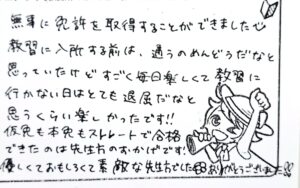 無事に免許を取得することができました♡
教習に入所する前は、通うのめんどうだなと
思っていたけどすごく毎日楽しくて教習に
行かない日はとても退屈だなと
思うくらい楽しかったです!!
仮免も本免もストレートで合格
できたのは先生方のおかげです!
優しくておもしろくて素敵な先生方でした ありがとうございました